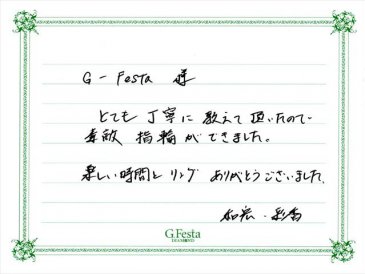 G - Festa 様
とても丁寧に教えて頂いたので
素敵指輪ができました。
楽しい時間とリングありがとうございました。
和宏・彩香
G.Festa
DIAMOND